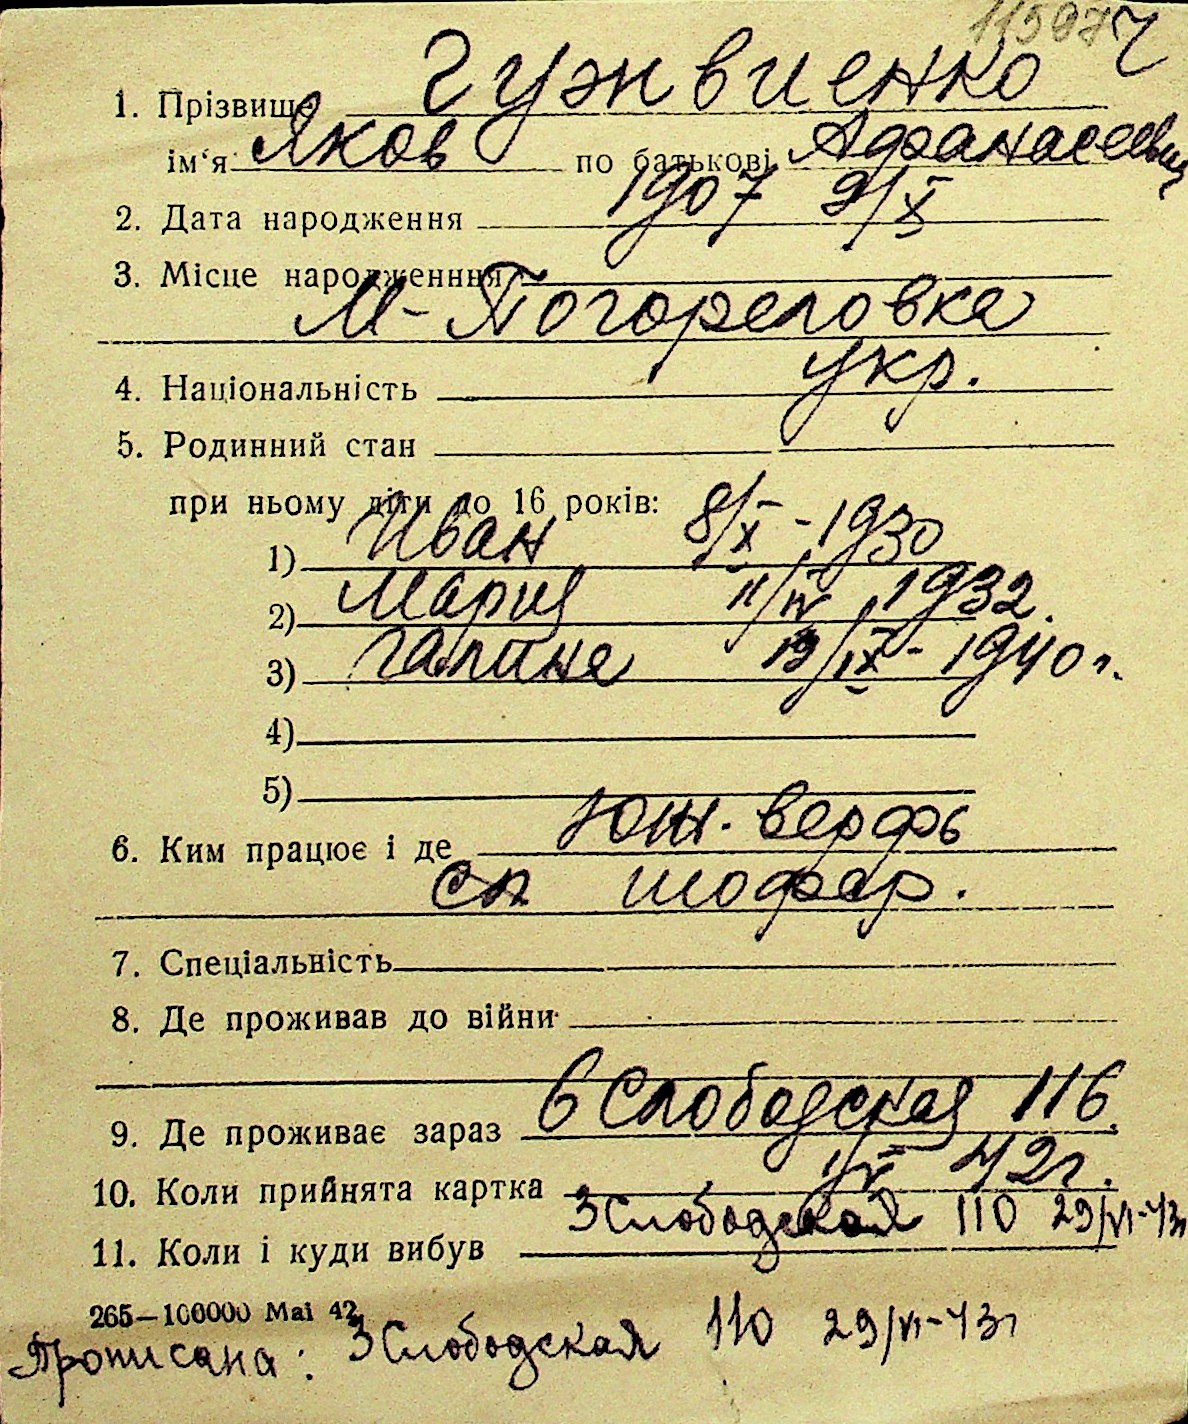 115974
1. Прізвище Гужвиенко
ім‘я Яков по батькові Афанасевич
2. Дата народження 1907 9/X
3. Місце народженння
М-Погореловка
4. Національність укр.
5. Родинний стан
при ньому діти до 16 років:
1) Иван 8/X-1930
2) Мария 11/IV 1932.
3) Галина 19/IX-1940г.
4)
5)
6. Ким працює і де Юж. верфь
сл шофер.
7. Спеціальність
8. Де проживав до війни
9. Де проживає зараз 6 Слободская 116.
10. Коли прийнята картка 1/V 42г.
11. Коли і куди вибув 3 Слободская 110 29/VI-43г
265—100000 Mai 42
Прописана: 3 Слободская 110 29/VI-43г